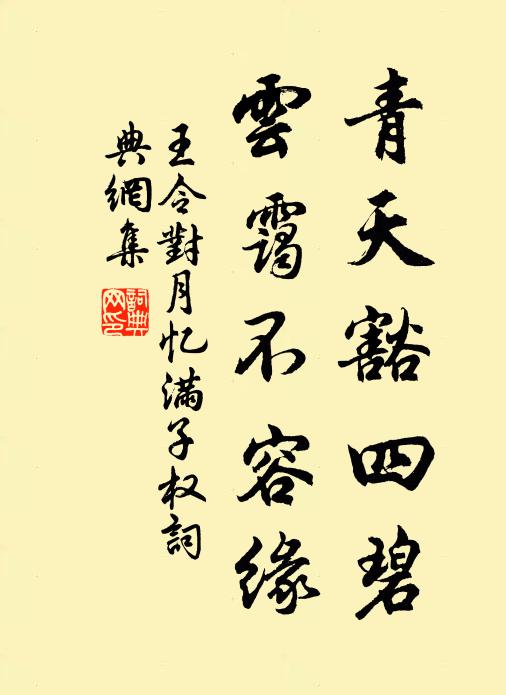 青天豁四碧
雲靄不容缘
王令對月忆满子权詞
典網集
詞典
网印